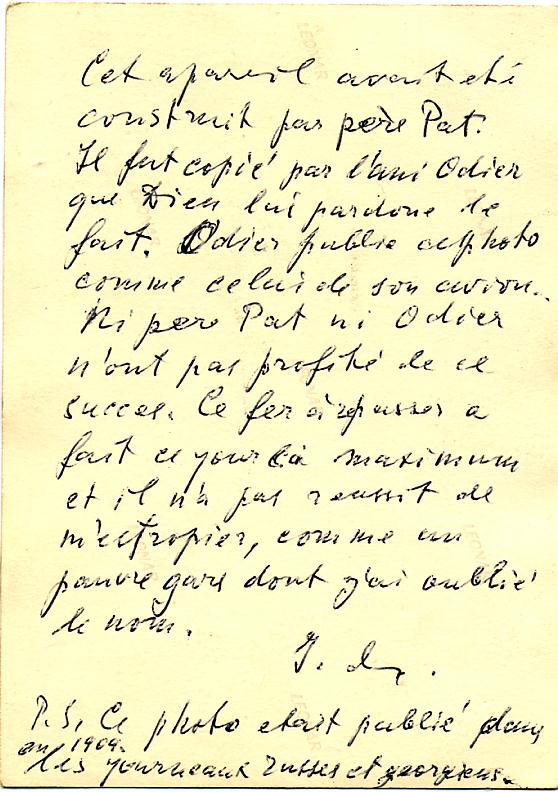 Cet apareil avait eté
construit par père Pat.
Il fut copié par l'ami Odier
que Dieu lui pardone le
fait. Odier publie cet photo
comme celui de son avion.
Ni pere Pat ni Odier
n'ont pas profité de ce
succes. Ce fer à repasser a
fait ce your là maximum
et il n'a pas reussit de
m'estropier, comme un
pauvre gars dont j'ai oublié
le nom.
P.S. Ce photo etait publié dans
en 1909.
les yourneaux russes et georgiens.
LEONAR